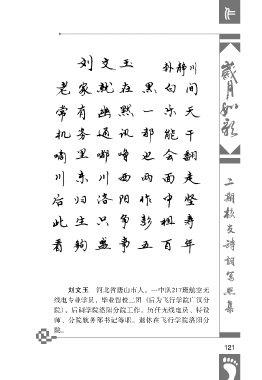 刘文玉
孙静川
老家就在黑白间
常有幽默一乐天
机务通讯都能干
喃里嘟噜也会翻
川东川西两面走
后归洛阳作中坚
此生只争彭祖寿
看狗盛事五百年
刘文玉 河北省唐山市人。一中队217班航空无
线电专业学员，毕业留校二团（后为飞行学院广汉分
院），后调学院洛阳分院工作。历任无线电员、特设
师、分院航务部书记等职。退休在飞行学院洛阳分
院。
岁月如歌
二期校友诗词写照集
121